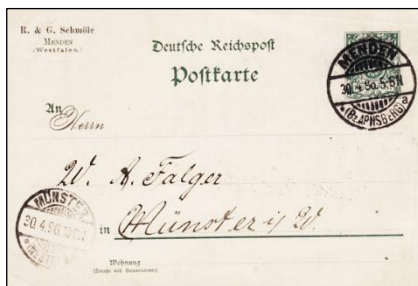 R. & G. Schmöle
MENDEN
(Westfalen.)
Deutsche Reichspost
Postkarte
MENDEN
30.4.96.5-6N
(BZ. ARNSBERG) a
An
Herrn
W. A. Falger
in Münster i/W.
MÜNSTER
30.4.96.
Wohnung
(Straße und Hausnummer)